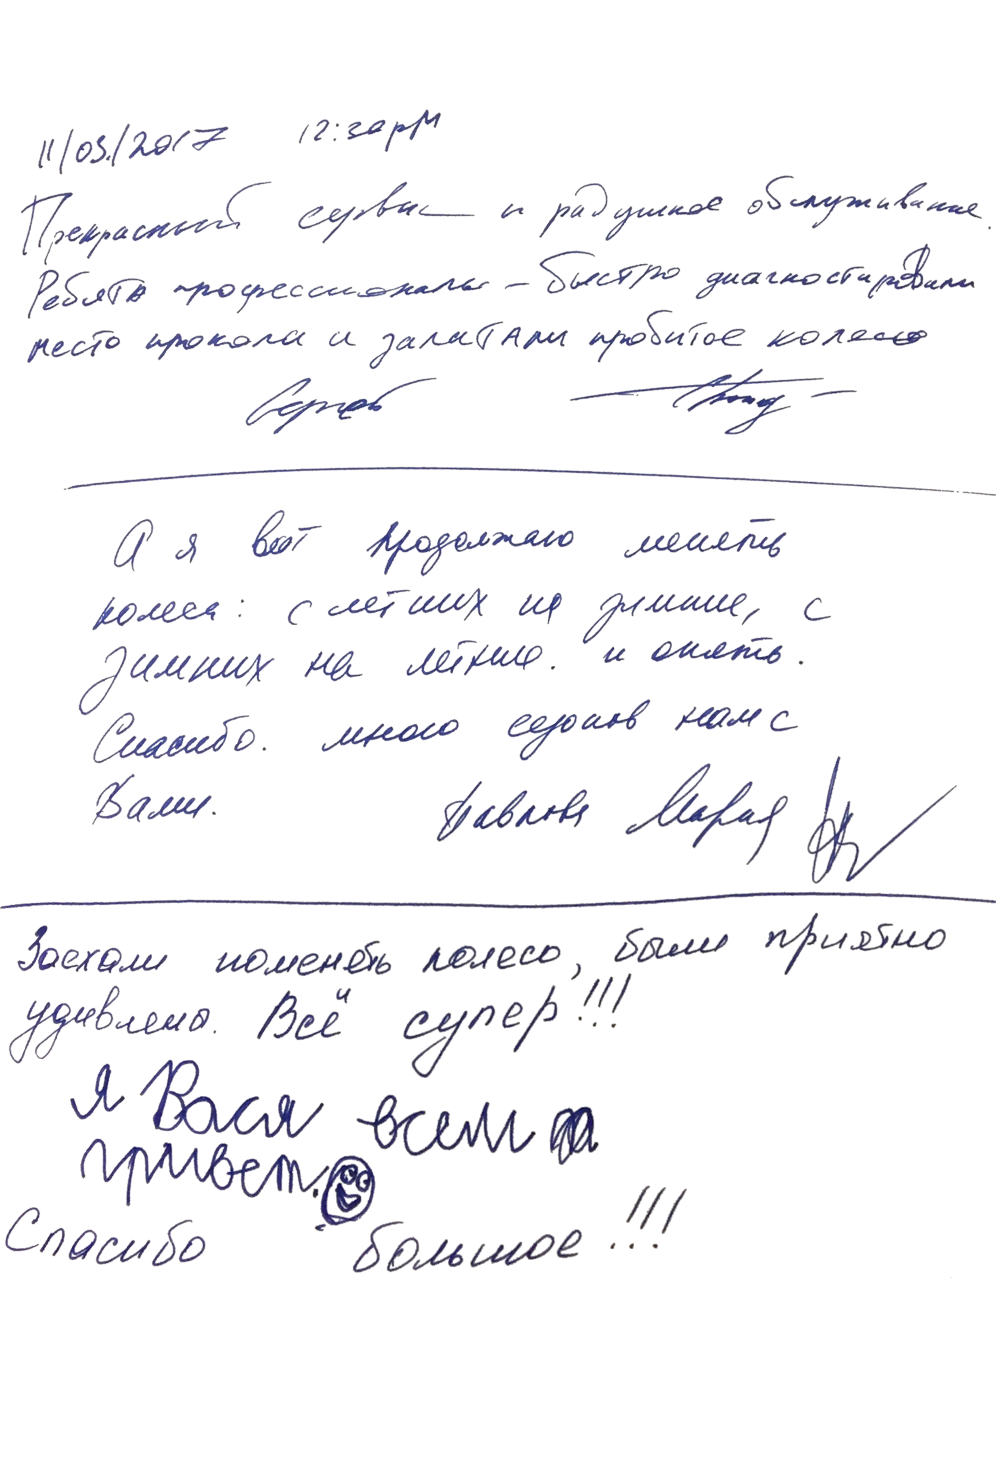 11/03/2017 12:30 pm
Прекрасный сервис и радушное обслуживание.
Ребята профессионалы - быстро диагностировали
место прокола и залатали пробитое колесо
Сергей
А я вот продолжаю менять
колеса: с летних на зимние, с
зимних на летние. и опять.
Спасибо. много сезонов нам с
Вами.
Павлова Мария
Заехали поменять колесо, были приятно
удивлены. Всё и супер!!!
Я Вася всем
привет.
Спасибо большое!!!